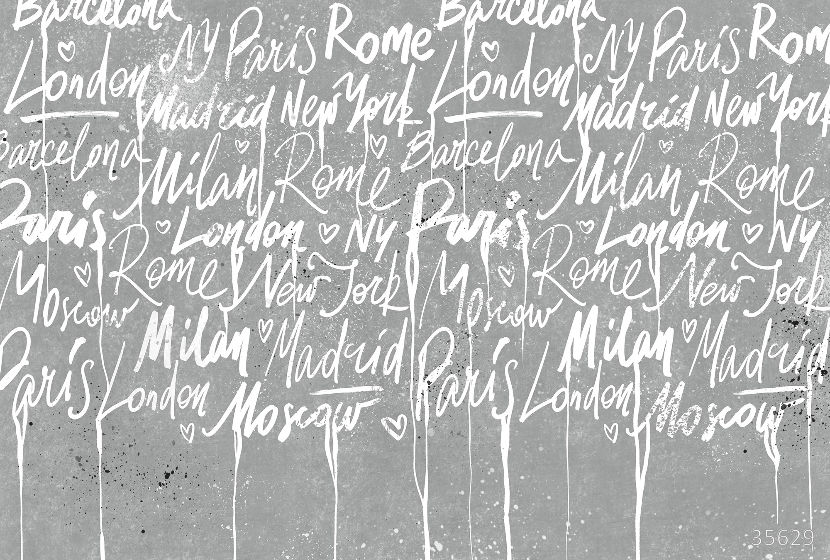 Barcelona Barcelona
London NY Paris Rome London NY Paris Rom
Madrid New York Madrid New York
Barcelona Milan Rome Barcelona Milan Rome
Paris London NY Paris London NY
Moscow Rome New York Moscow Rome New York
Paris Milan Madrid Paris Milan Madrid
London Moscow London Moscow
35629